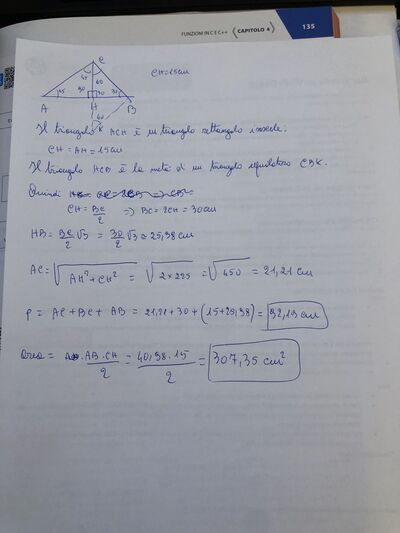 FUNZIONI IN C E C++ ( CAPITOLO 4 ) 135
C
CH = 15 cm
45 60
45 90 90 30
A H B
60
K
Il triangolo ACH è un triangolo rettangolo isoscele.
CH = AH = 15 cm
Il triangolo HCB è la metà di un triangolo equilatero CBK.
Quindi
CH = BC/2 => BC = 2CH = 30 cm
HB = BC/2 √3 = 30/2 √3 = 25,98 cm
AC = √(AH² + CH²) = √(2 × 225) = √450 = 21,21 cm
P = AC + BC + AB = 21,21 + 30 + (15 + 25,98) = 92,19 cm
Area = AB · CH/2 = 40,98 · 15/2 = 307,35 cm²